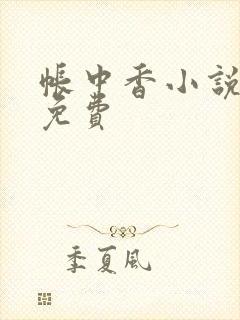 帳中香小說
免費
季夏風